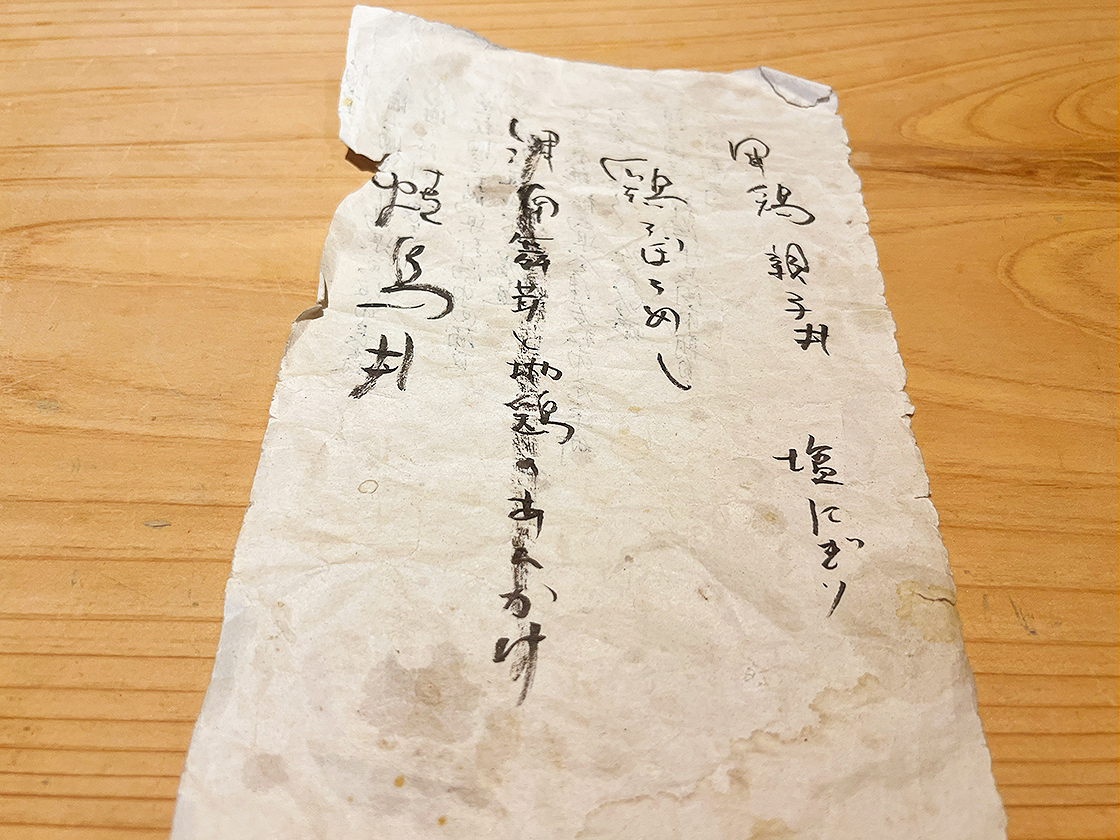 軍鶏 親子丼 塩にぎり
鶏そぼろめし
舞茸と地鶏のあんかけ
焼鳥丼